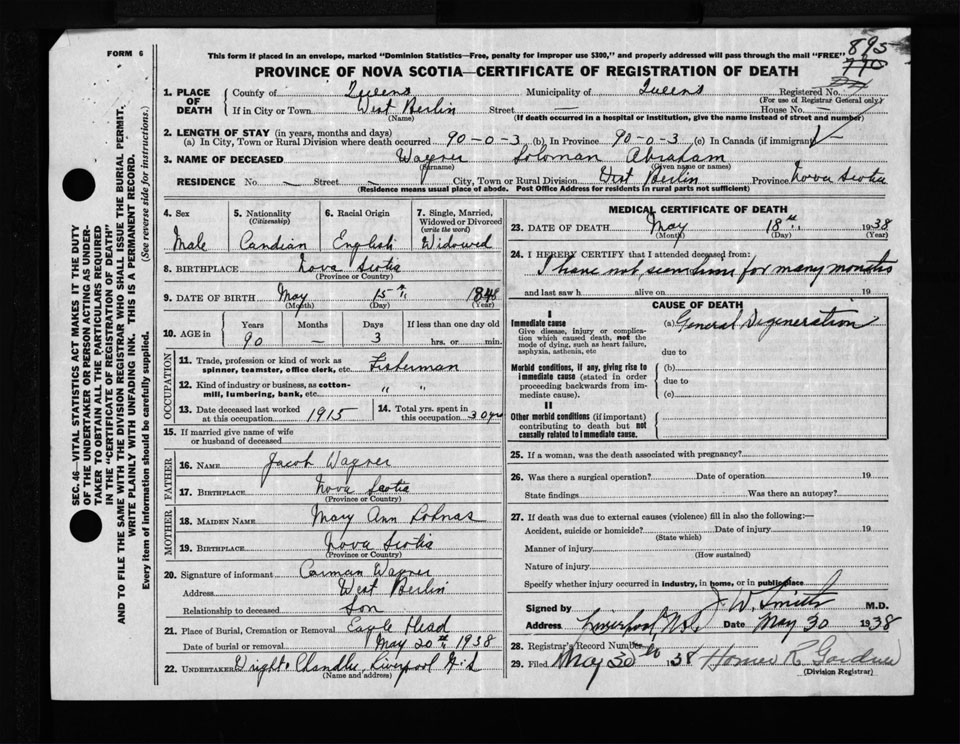 FORM 6
This form if placed in an envelope, marked "Dominion Statistics—Free, penalty for improper use $300," and properly addressed will pass through the mail "FREE"
895
770
PROVINCE OF NOVA SCOTIA—CERTIFICATE OF REGISTRATION OF DEATH
1. PLACE OF DEATH County of Queens Municipality of Queens Registered No.
(For use of Registrar General only)
If in City or Town West Berlin Street — House No. —
(Name) (If death occurred in a hospital or institution, give the name instead of street and number)
2. LENGTH OF STAY (in years, months and days)
(a) In City, Town or Rural Division where death occurred 90-0-3 (b) In Province 90-0-3 (c) In Canada (if immigrant)
3. NAME OF DECEASED Wagner Soloman Abraham
(Surname) (Given name or names)
RESIDENCE No. — Street — City, Town or Rural Division West Berlin Province Nova Scotia
(Residence means usual place of abode. Post Office Address for residents in rural parts not sufficient)
4. Sex 5. Nationality 6. Racial Origin 7. Single, Married, Widowed or Divorced
(Citizenship) (write the word)
Male Candian English Widowed
8. BIRTHPLACE Nova Scotia
(Province or Country)
9. DATE OF BIRTH May 15th 1848
(Month) (Day) (Year)
10. AGE in Years Months Days If less than one day old
90 — 3 hrs. or min.
OCCUPATION
11. Trade, profession or kind of work as spinner, teamster, office clerk, etc. Fisherman
12. Kind of industry or business, as cotton-mill, lumbering, bank, etc. " "
13. Date deceased last worked at this occupation 1915 14. Total yrs. spent in this occupation 30 yrs
15. If married give name of wife or husband of deceased
FATHER
16. NAME Jacob Wagner
17. BIRTHPLACE Nova Scotia
(Province or Country)
MOTHER
18. MAIDEN NAME Mary Ann Lohnas
19. BIRTHPLACE Nova Scotia
(Province or Country)
20. Signature of informant Carman Wagner
Address West Berlin
Relationship to deceased Son
21. Place of Burial, Cremation or Removal Eagle Head
Date of burial or removal May 20th 1938
22. UNDERTAKER Wright Chandler Liverpool N.S
(Name and address)
MEDICAL CERTIFICATE OF DEATH
23. DATE OF DEATH May 18th 1938
(Month) (Day) (Year)
24. I HEREBY CERTIFY that I attended deceased from:
I have not seen him for many months
and last saw h alive on 19
CAUSE OF DEATH
I
Immediate cause (a) General Degeneration
Give disease, injury or complication which caused death, not the mode of dying, such as heart failure, asphyxia, asthenia, etc
due to
Morbid conditions, if any, giving rise to immediate cause (stated in order proceeding backwards from immediate cause).
(b)
due to
(c)
II
Other morbid conditions (if important) contributing to death but not causally related to immediate cause.
25. If a woman, was the death associated with pregnancy?
26. Was there a surgical operation? Date of operation 19
State findings Was there an autopsy?
27. If death was due to external causes (violence) fill in also the following:—
Accident, suicide or homicide? Date of injury 19
(State which)
Manner of injury
(How sustained)
Nature of injury
Specify whether injury occurred in industry, in home, or in public place
Signed by J. W. Smith M.D.
Address Liverpool, N.S. Date May 30 1938
28. Registrar's Record Number
29. Filed May 30th 1938 Homer R Gardner
(Division Registrar)
SEC. 46—VITAL STATISTICS ACT MAKES IT THE DUTY
OF THE UNDERTAKER OR PERSON ACTING AS UNDER-
TAKER TO OBTAIN ALL THE PARTICULARS REQUIRED
IN THE "CERTIFICATE OF REGISTRATION OF DEATH"
AND TO FILE THE SAME WITH THE DIVISION REGISTRAR WHO SHALL ISSUE THE BURIAL PERMIT.
WRITE PLAINLY WITH UNFADING INK. THIS IS A PERMANENT RECORD.
Every item of information should be carefully supplied. (See reverse side for instructions.)